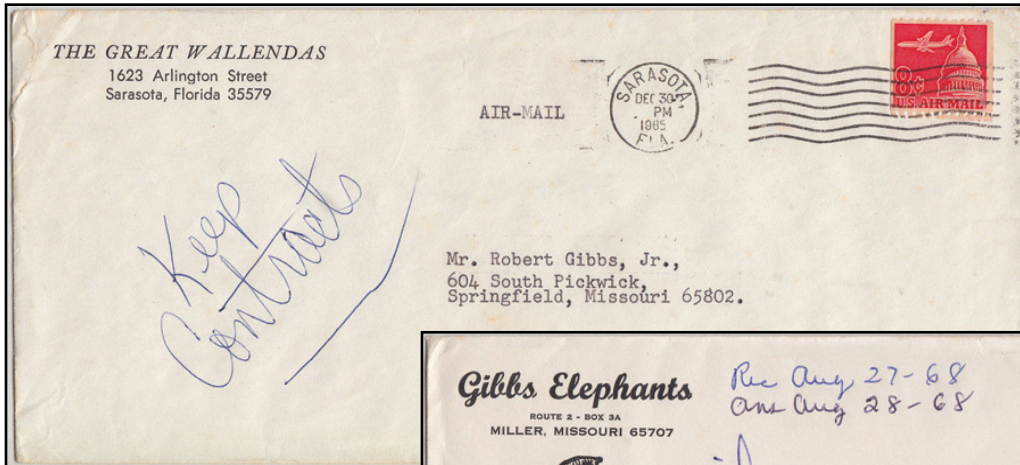 THE GREAT WALLENDAS
1623 Arlington Street
Sarasota, Florida 35579
AIR-MAIL
SARASOTA,
DEC 30
PM
1965
FLA.
8¢
U.S. AIR MAIL
Keep
Contracts
Mr. Robert Gibbs, Jr.,
604 South Pickwick,
Springfield, Missouri 65802.
Gibbs Elephants
ROUTE 2 - BOX 3A
MILLER, MISSOURI 65707
Rec Aug 27-68
Ans Aug 28-68